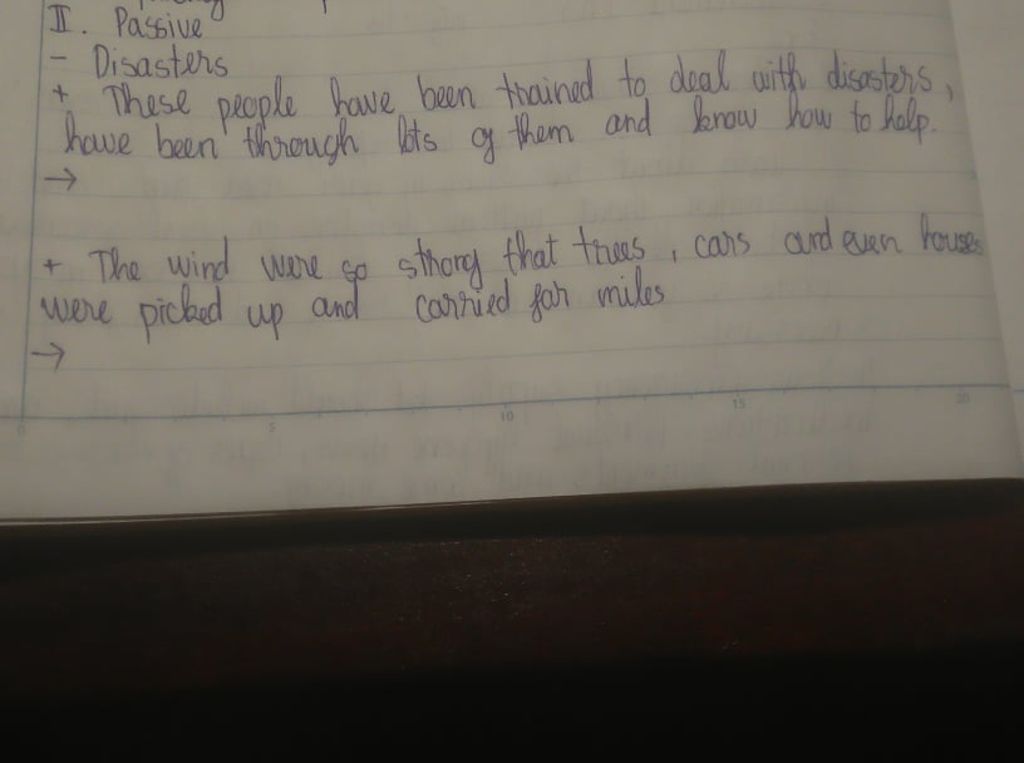 II. Passive
- Disasters
+ These people have been trained to deal with disasters,
have been through lots of them and know how to help.
→
+ The wind were so strong that trees, cars and even houses
were picked up and carried for miles
→
0 5 10 15 20